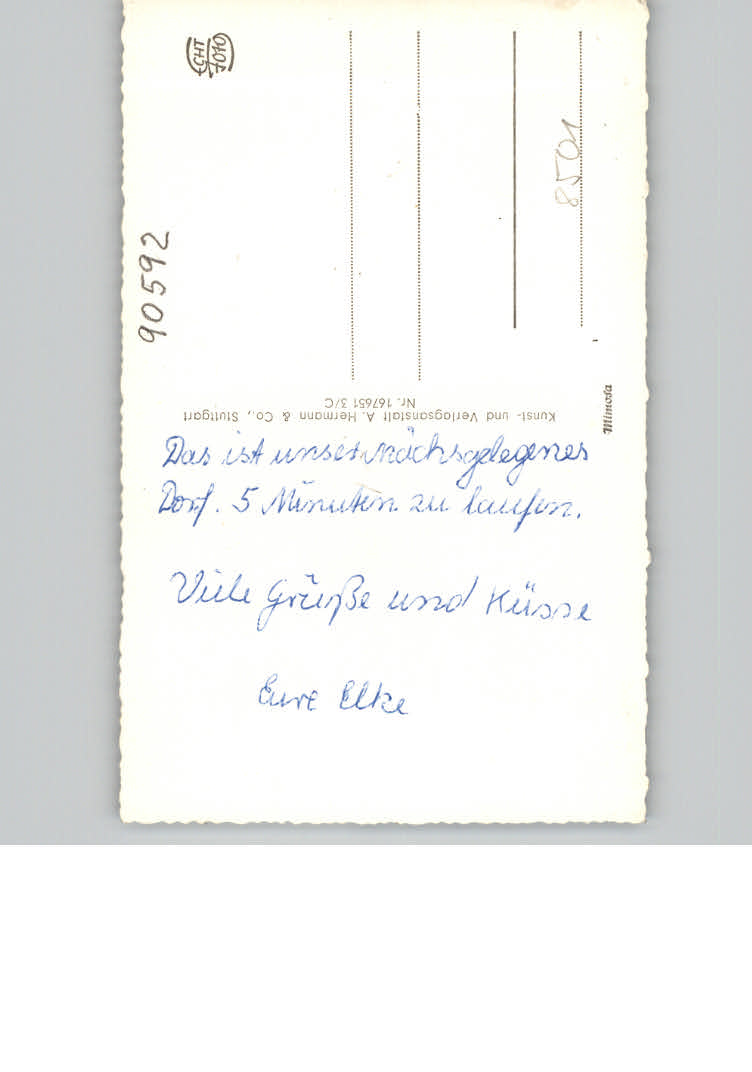 ECHT FOTO
90592
8501
Mimosa
Kunst- und Verlagsanstalt A. Hermann & Co., Stuttgart
Nr. 167651 3/C
Das ist unser nächsgelegenes
Dorf. 5 Minuten zu laufen.
Viele Grüße und Küsse
Eure Elke